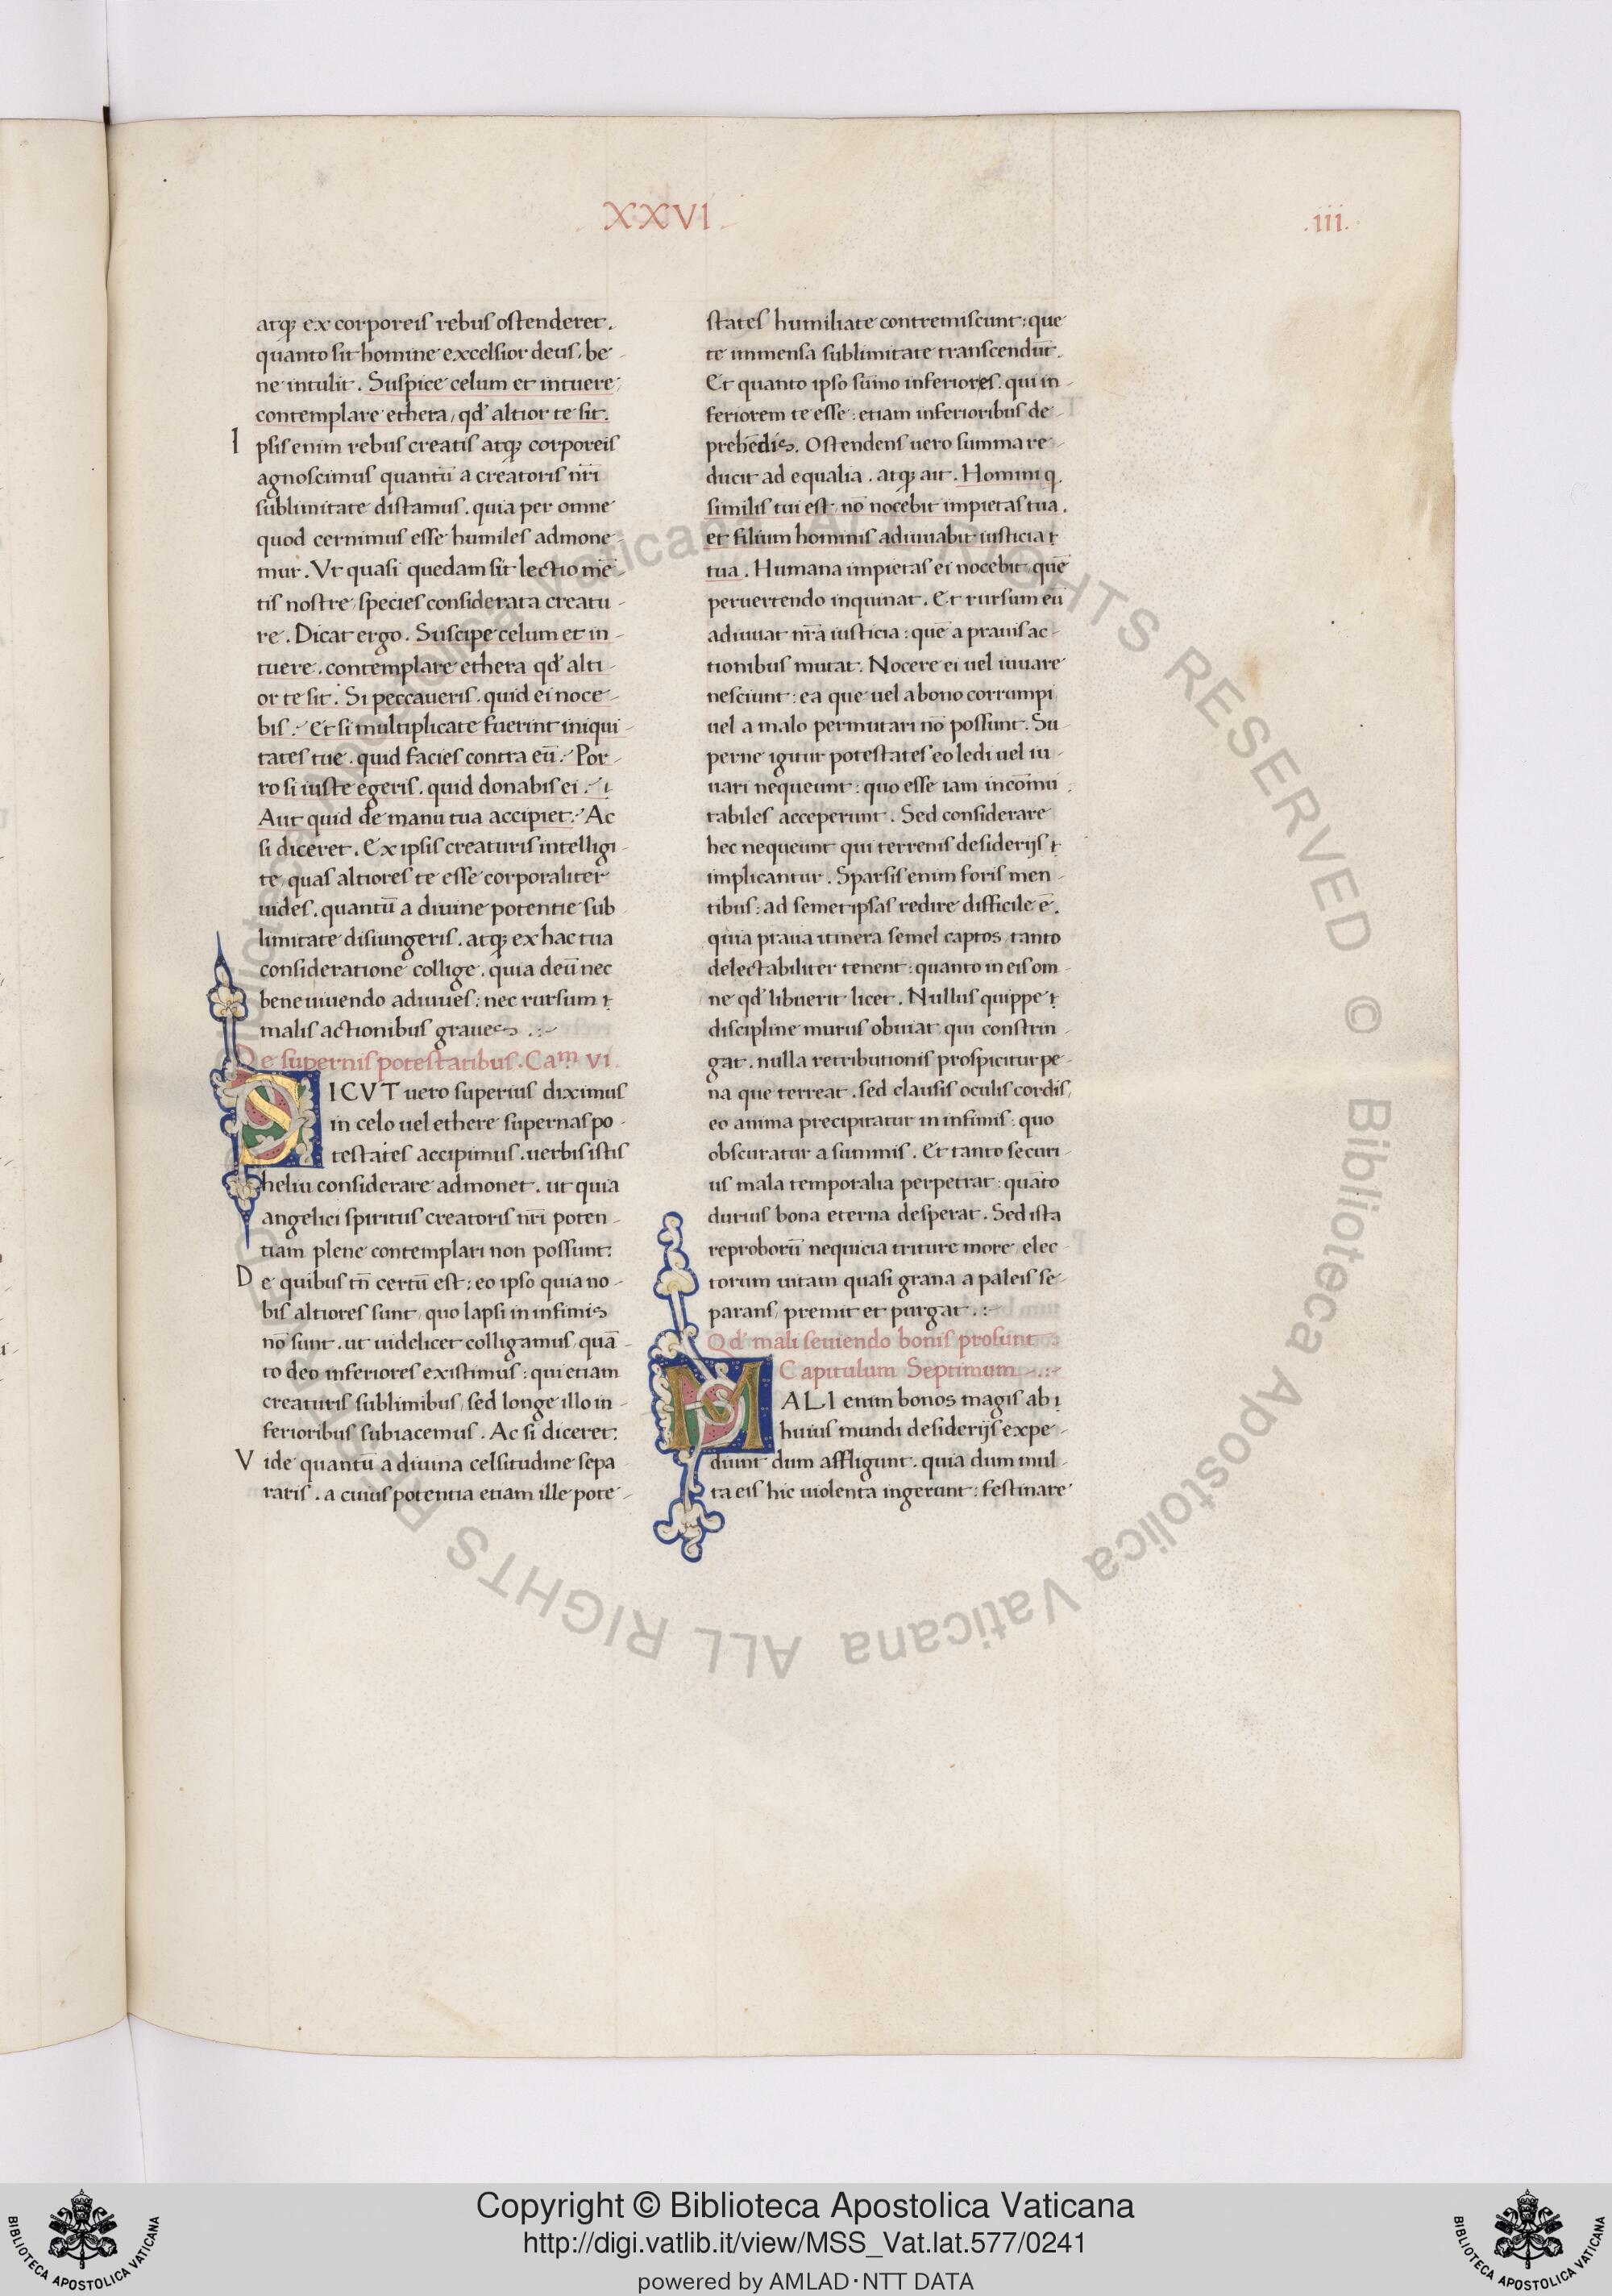 XXVI
.iii.
atq; ex corporeis rebus ostenderet.
quanto sit homine excelsior deus, be-
ne intulit. Suspice celum et intuere,
contemplare ethera, qd' altior te sit.
Ipsis enim rebus creatis atq; corporeis
agnoscimus quantū a creatoris nr̄i
sublimitate distamus. quia per omne
quod cernimus esse humiles admone-
mur. Vt quasi quedam sit lectio mē-
tis nostre, species considerata creatu-
re. Dicat ergo. Suscipe celum et in-
tuere. contemplare ethera qd' alti-
or te sit. Si peccaueris. quid ei noce-
bis. Et si multiplicate fuerint iniqui-
tates tue. quid facies contra eū. Por-
ro si iuste egeris. quid donabis ei.
Aut quid de manu tua accipiet. Ac
si diceret. Ex ipsis creaturis intelligi-
te, quas altiores te esse corporaliter
uides. quantū a diuine potentie sub
limitate disiungeris. atq; ex hac tua
consideratione collige. quia deū nec
bene uiuendo adiuues: nec rursum
malis actionibus graues.
De supernis potestatibus. Cam. VI.
SICVT uero superius diximus
in celo uel ethere supernas po-
testates accipimus. uerbis istis
heliu considerare admonet. ut quia
angelici spiritus creatoris nr̄i poten-
tiam plene contemplari non possunt:
De quibus tn̄ certū est: eo ipso quia no-
bis altiores sunt, quo lapsi in infimis
nō sunt. ut uidelicet colligamus, quā-
to deo inferiores existimus: qui etiam
creaturis sublimibus, sed longe illo in-
ferioribus subiacemus. Ac si diceret:
Vide quantū a diuina celsitudine sepa-
raris. a cuius potentia etiam ille pote-
states humiliate contremiscunt: que
te immensa sublimitate transcendūt.
Et quanto ipso sūmo inferiores. qui in-
feriorem te esse: etiam inferioribus de-
prehēdis. Ostendens uero summa re-
ducit ad equalia. atq; ait. Homini q.
similis tui est, nō nocebit impietas tua.
et filium hominis adiuuabit iusticia
tua. Humana impietas ei nocebit, quē
peruertendo inquinat. Et rursum eū
adiuuat nr̄a iusticia: quē a prauis ac-
tionibus mutat. Nocere ei uel iuuare
nesciunt: ea que uel a bono corrumpi,
uel a malo permutari nō possunt. Su-
perne igitur potestates eo ledi uel iu-
uari nequeunt: quo esse iam incōmu-
tabiles acceperunt. Sed considerare
hec nequeunt qui terrenis desiderijs
implicantur. Sparsis enim foris men-
tibus: ad semetipsas redire difficile ē.
quia praua itinera semel captos, tanto
delectabiliter tenent: quanto in eis om-
ne qd' libuerit licet. Nullus quippe
discipline murus obuiat qui constrin-
gat. nulla retributionis prospicitur pe-
na que terreat. sed clausis oculis cordis,
eo anima precipitatur in infimis: quo
obscuratur a summis. Et tanto securi-
us mala temporalia perpetrat: quāto
durius bona eterna desperat. Sed ista
reproborū nequicia triture more, elec-
torum uitam quasi grana a paleis se-
parans, premit et purgat.
Qd' mali seuiendo bonis prosunt
Capitulum Septimum
MALI enim bonos magis ab
huius mundi desiderijs expe-
diunt dum affligunt. quia dum mul-
ta eis hic uiolenta ingerunt: festinare
Biblioteca Apostolica Vaticana ALL RIGHTS RESERVED © Biblioteca Apostolica Vaticana ALL RIGHTS RESERVED
Copyright © Biblioteca Apostolica Vaticana
http://digi.vatlib.it/view/MSS_Vat.lat.577/0241
powered by AMLAD·NTT DATA
BIBLIOTECA APOSTOLICA VATICANA
BIBLIOTECA APOSTOLICA VATICANA